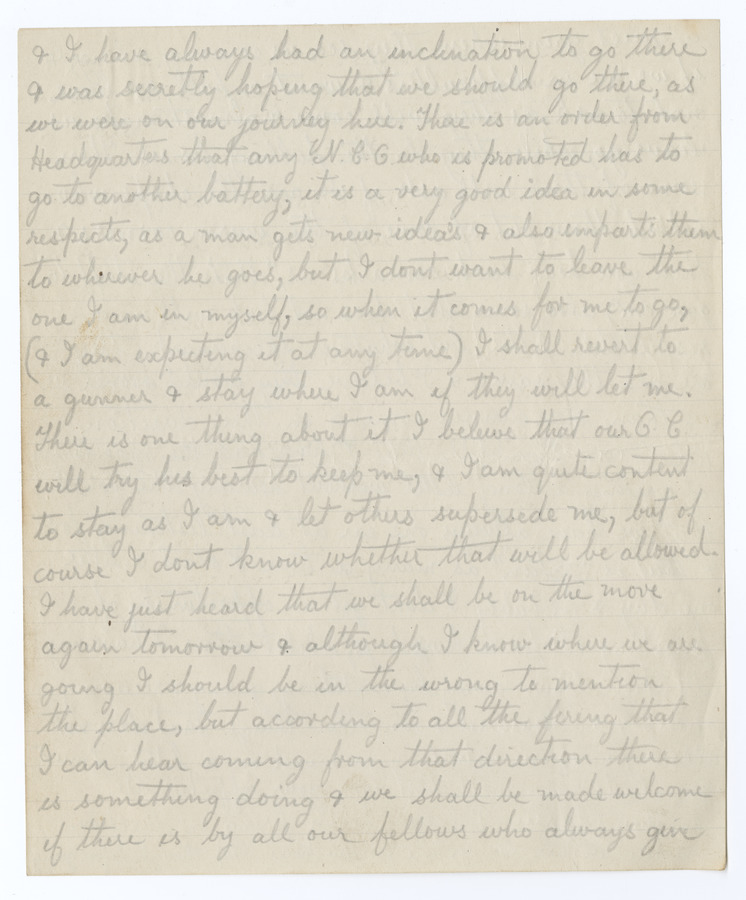 & I have always had an inclination to go there
& was secretly hoping that we should go there, as
we were on our journey here. There is an order from
Headquarters that any N.C.O who is promoted has to
go to another battery, it is a very good idea in some
respects, as a man gets new idea's & also imparts them
to wherever he goes, but I dont want to leave the
one I am in myself, so when it comes for me to go,
(& I am expecting it at any time) I shall revert to
a gunner & stay where I am if they will let me.
There is one thing about it I beleive that our O C
will try his best to keep me, & I am quite content
to stay as I am & let others supersede me, but of
course I dont know whether that will be allowed.
I have just heard that we shall be on the move
again tomorrow & although I know where we are
going I should be in the wrong to mention
the place, but according to all the firing that
I can hear coming from that direction there
is something doing & we shall be made welcome
if there is by all our fellows who always give